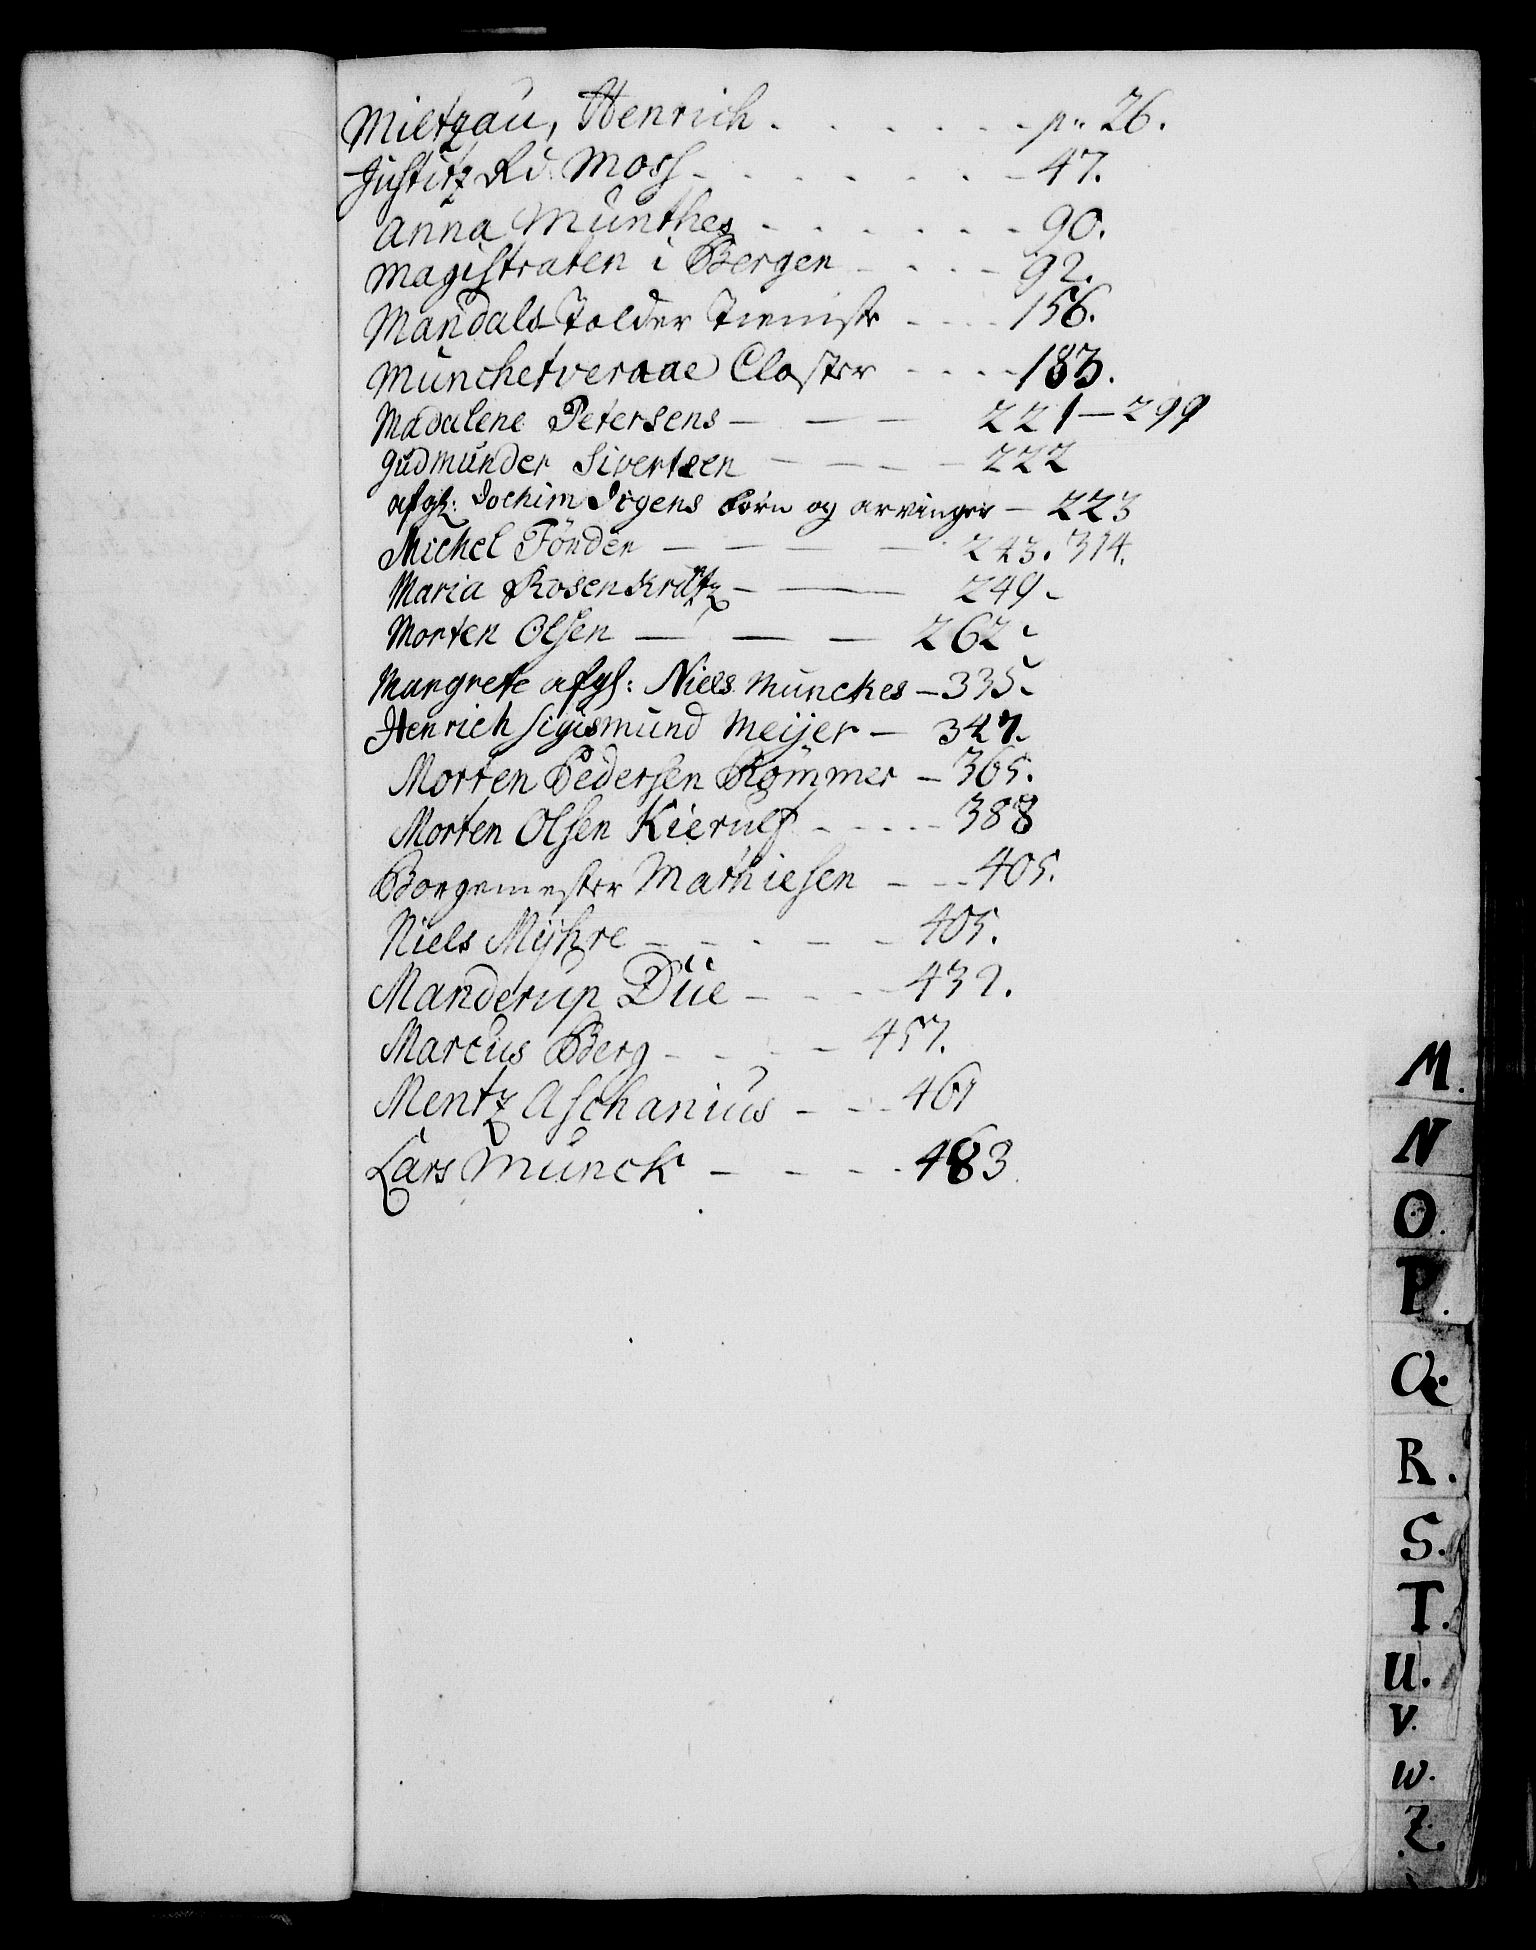 Mietzau, Henrich . . . . . . . p. 26.
Justitz Rd. Moss - . . . . . . - 47.
Anna Münthes . . . . . . - 90.
Magistraten i Bergen - . . . - 92.
Mandals Tolder Tieniste - . . . 156.
Münchetveraae Closter - . . . 183.
Madalene Petersens — — — 221 — 299
Gudmunder Sivertsen — — — 222
afg: Jochim Irgens börn og arvinger — 223
Michel Tönder — — — — 243. 314.
Maria Rosenkratz — — — 249.
Morten Olsen — — — 262.
Margrete afg: Niels Munckes — 335.
Henrich Sigismund Meijer — 347.
Morten Pedersen Römmer — 365.
Morten Olsen Kierulf - . . . - 388
Borgemester Mathiesen - - - 405.
Niels Myhre - - . - - 405.
Manderup Düe - - - - 432.
Marcus Berg - - - - 457.
Mentz Aschanius - - - 461
Lars Munck - - - - 483
M.
N
O.
P.
Q.
R.
S.
T.
U.
V.
W.
Z.